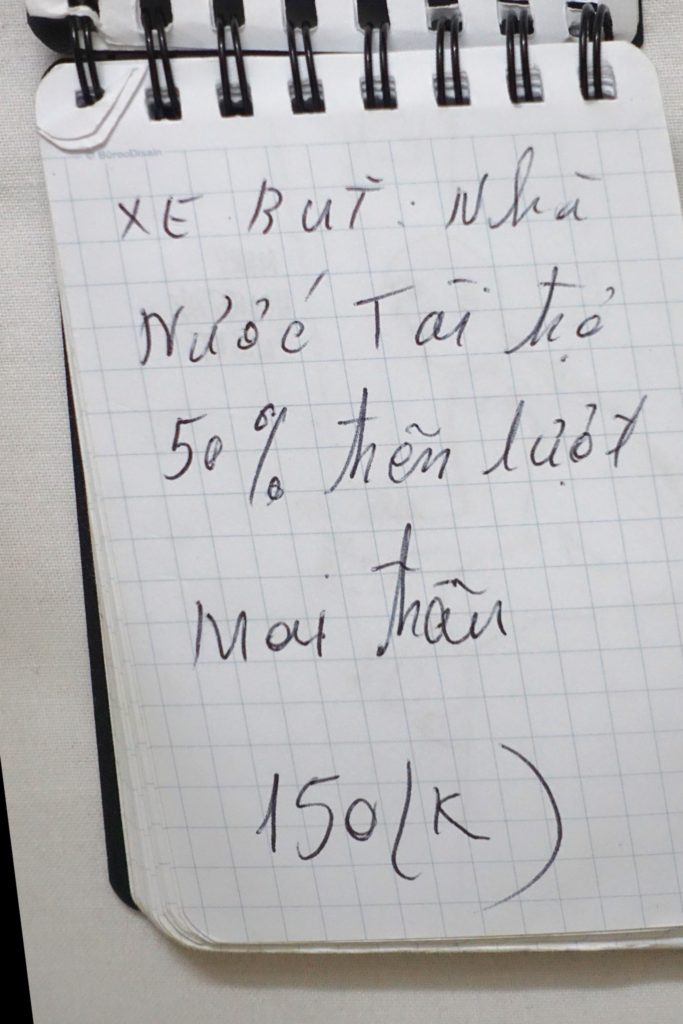 © BürooDisain
XE BUT: Nhà
Nước Tài trợ
50% trên lượt
Mai trân
150(K)